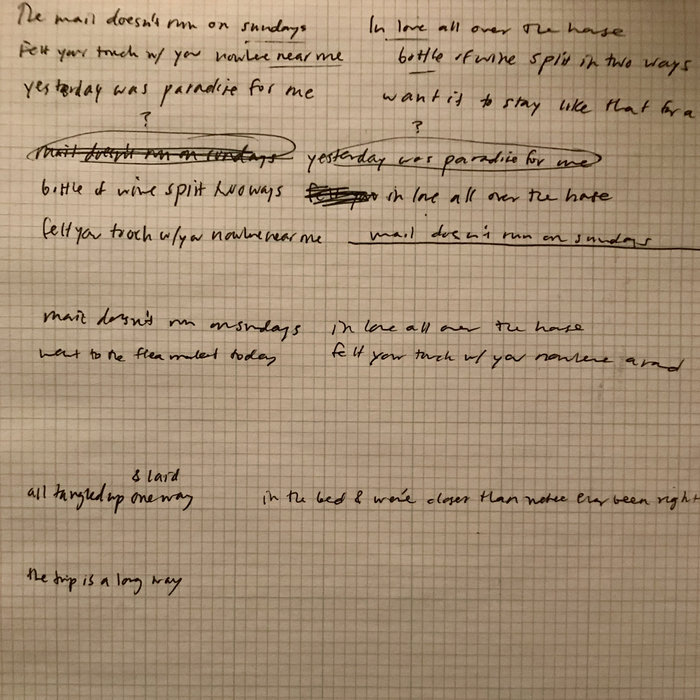 The mail doesn't run on sundays
In love all over the house
Felt your touch w/ you nowhere near me
bottle of wine split in two ways
yesterday was paradise for me
want it to stay like that for a
?
?
mail doesn't run on sundays
yesterday was paradise for me
bottle of wine split two ways
in love all over the house
felt you touch w/ you nowhere near me
mail doesn't run on sundays
mail doesn't run on sundays
in love all over the house
went to the flea market today
felt your touch w/ you nowhere around
& laid
all tangled up one way
in the bed & we're closer than ever been right
the trip is a long way